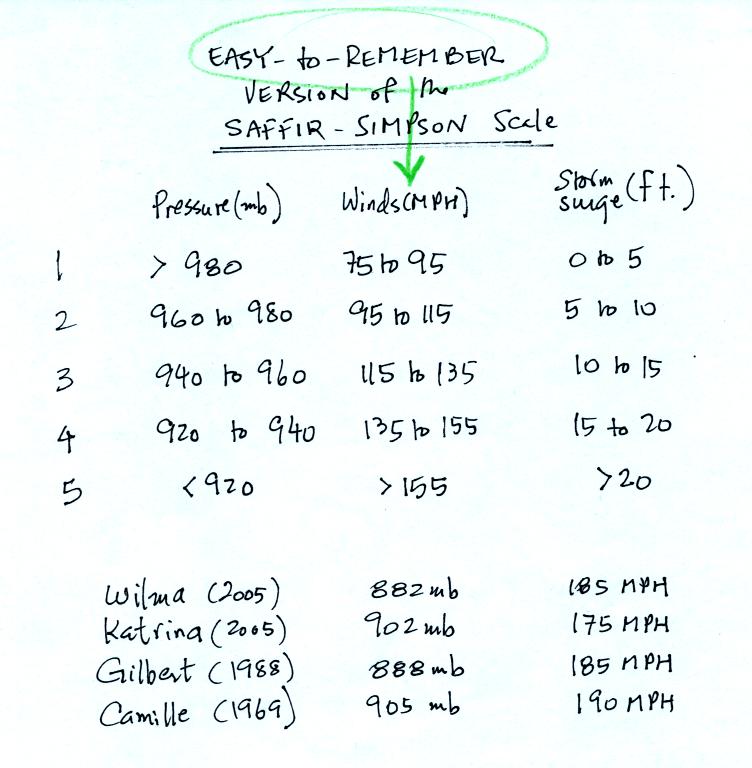 EASY-to-REMEMBER
VERSION of the
SAFFIR-SIMPSON Scale
Pressure(mb) Winds(MPH) Storm surge (ft.)
1 > 980 75 to 95 0 to 5
2 960 to 980 95 to 115 5 to 10
3 940 to 960 115 to 135 10 to 15
4 920 to 940 135 to 155 15 to 20
5 < 920 > 155 > 20
Wilma (2005) 882 mb 185 MPH
Katrina (2005) 902 mb 175 MPH
Gilbert (1988) 888 mb 185 MPH
Camille (1969) 905 mb 190 MPH